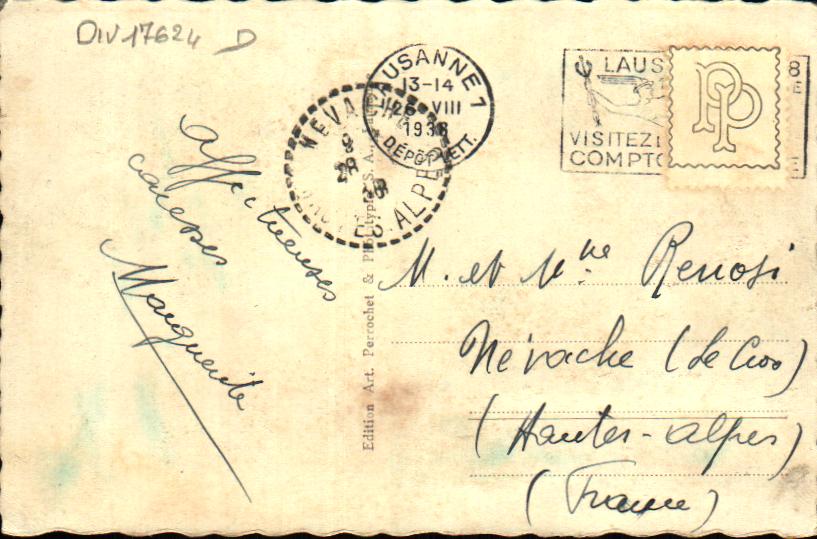 DIV17624 D
LAUSANNE 1
13-14
26 VIII
1938
DÉPÔT LETT.
NEVA
28
ES. ALPES
LAUS
8
VISITEZ
COMPTO
PP
Affectueuses
caresses
Marguerite
Edition Art. Perrochet & Phototypie S. A.
M. et Mme
Névache (
(Hautes-Alpes)
(France)